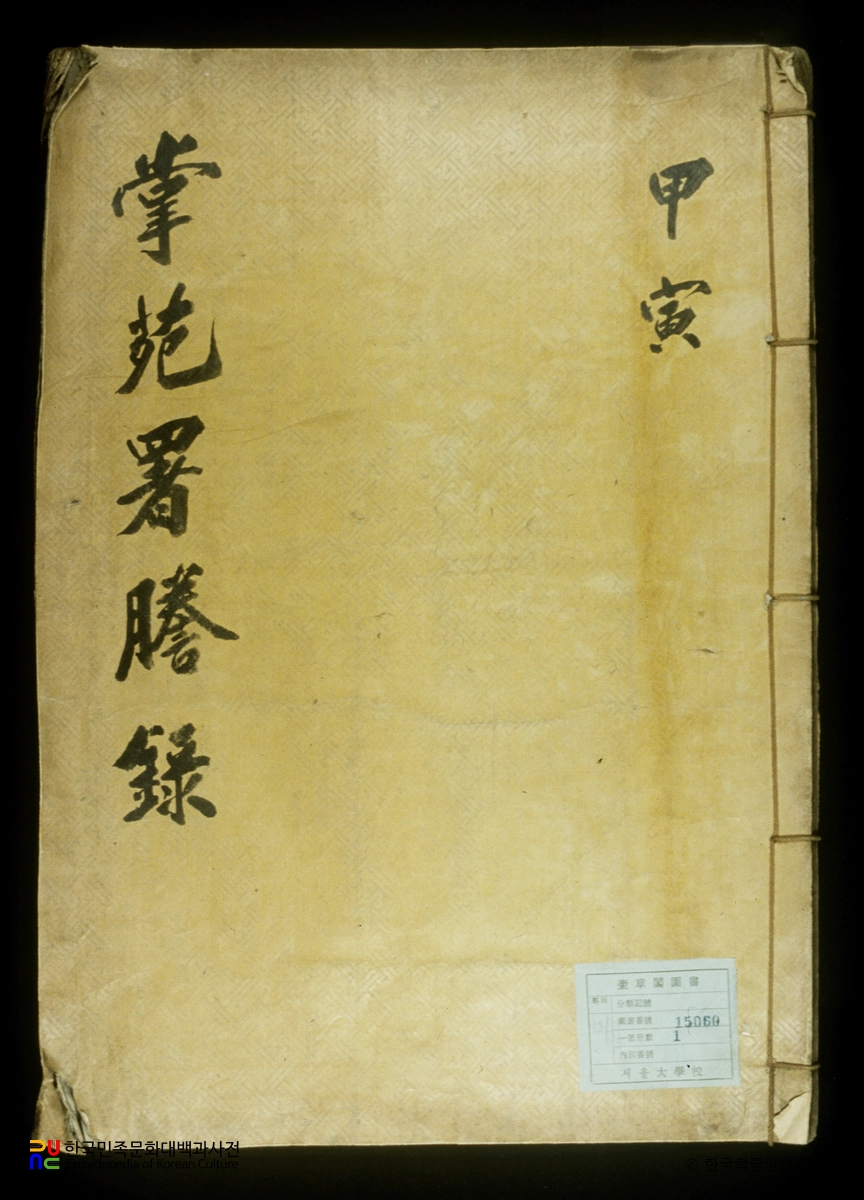 甲寅
掌苑署謄錄
奎章閣圖書
分類記號
圖書番號 15060
一部冊數 1
內容番號
서울大學校
한국민족문화대백과사전
Encyclopedia of Korean Culture